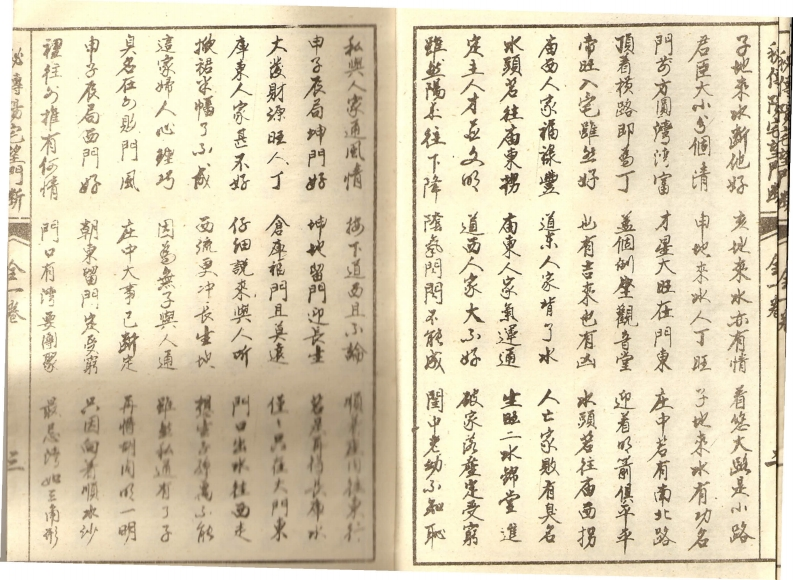 秘傳陽宅望門斷 全一卷 二
子地來水斷他好 亥地來水亦有情 着悠大路是小路
君臣大小分個清 申地來水人丁旺 子地來水有功名
門前方圓灣灣富 才星大旺在門東 庄中若有南北路
頂着橫路即為丁 盖個倒座觀音堂 迎着明前俱平平
帝旺入宅雖然好 也有吉來也有凶 水頭若往庙西拐
庙西人家福祿豐 道东人家背了水 人亡家敗有臭名
水頭若往庙東拐 庙東人家氣運通 生旺二水歸堂進
定主人才並文明 道西人家大不好 破家落產定受窮
雖然陽氣往下降 陰氣閉門不能成 閨中老幼不知恥
私與人家通風情 接下道西且不論 順着庄内往東行
申子辰局坤門好 坤地留門迎長生 若是有得長流水
大發財源旺人丁 倉庫祿門且莫遠 僅々只在大門東
庫東人家甚不好 仔細說來與人听 門口出水往西走
掀裙 幡了不成 西流更冲長生地 想生子孫萬不能
這家婦人心理巧 因為無子與人通 雖然私通有了子
臭名在外敗門風 庄中大事已斷定 再將 内明一明
申子辰局西門好 朝東留門定受窮 只因向着順水沙
裡往外推有何情 門口有灣要團聚 最忌灣如三角形
秘傳陽宅望門斷 全一卷 三